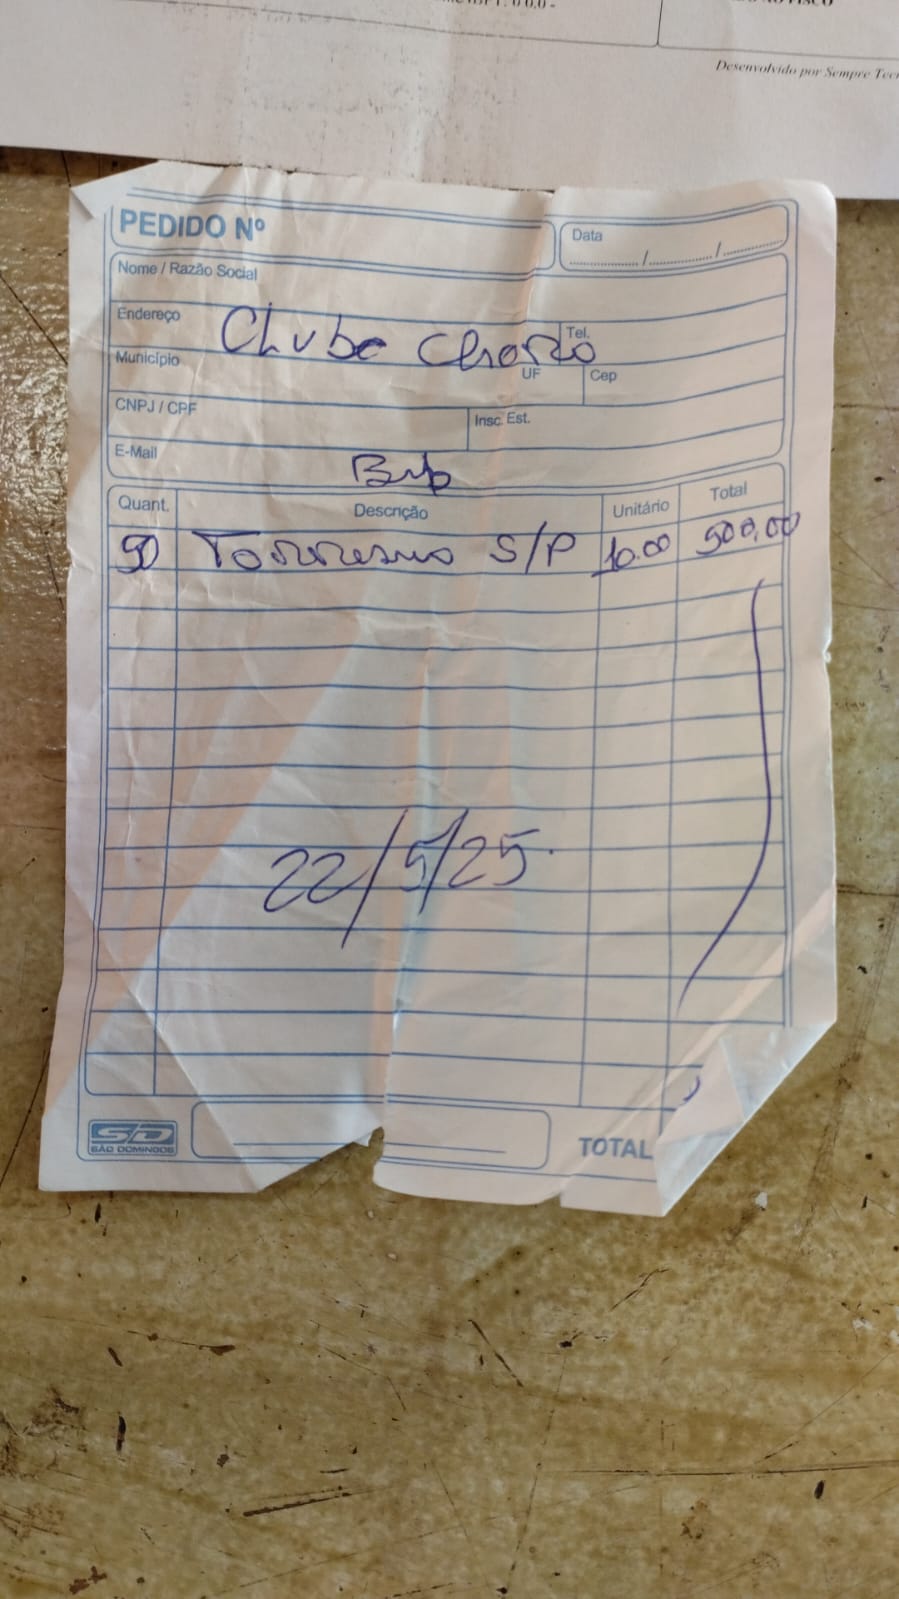 Desenvolvido por Sempre Tec
PEDIDO Nº
Data
/ /
Nome / Razão Social
Endereço
Clube
Tel.
Município
UF
Cep
CNPJ / CPF
Insc. Est.
E-Mail
Quant. Descrição Unitário Total
50 Torresmo S/P 10.00 500,00
22/5/25
SD
SÃO DOMINGOS
TOTAL